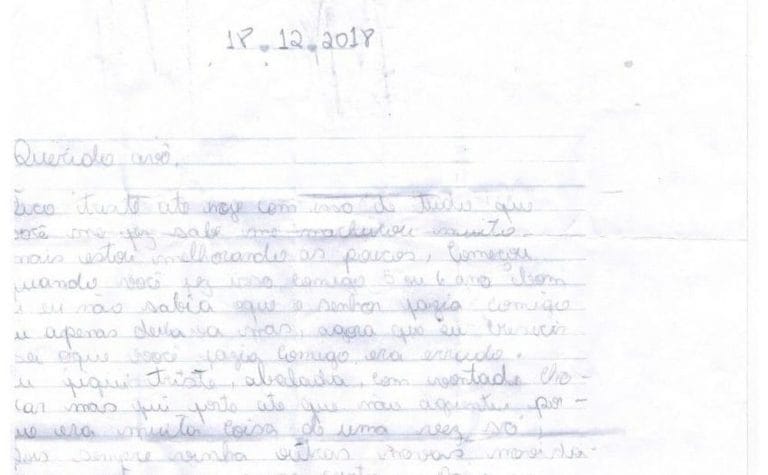 18.12.2018
Querido avô,
fico triste até hoje com isso de tudo que
você me fez sabe me machucou muito.
mais estou melhorando as poucos, começou
quando você fez isso comigo 5 ou 6 ano bom
eu não sabia oque o senhor fazia comigo
eu apenas deixava mas, agora que eu cresci
sei oque você fazia comigo era errado.
eu fiquei triste, abalada, com vontade cho-
rar mas fui forte até que não aguentei por-
que era muita coisa de uma vez só,
pois sempre vinha outras